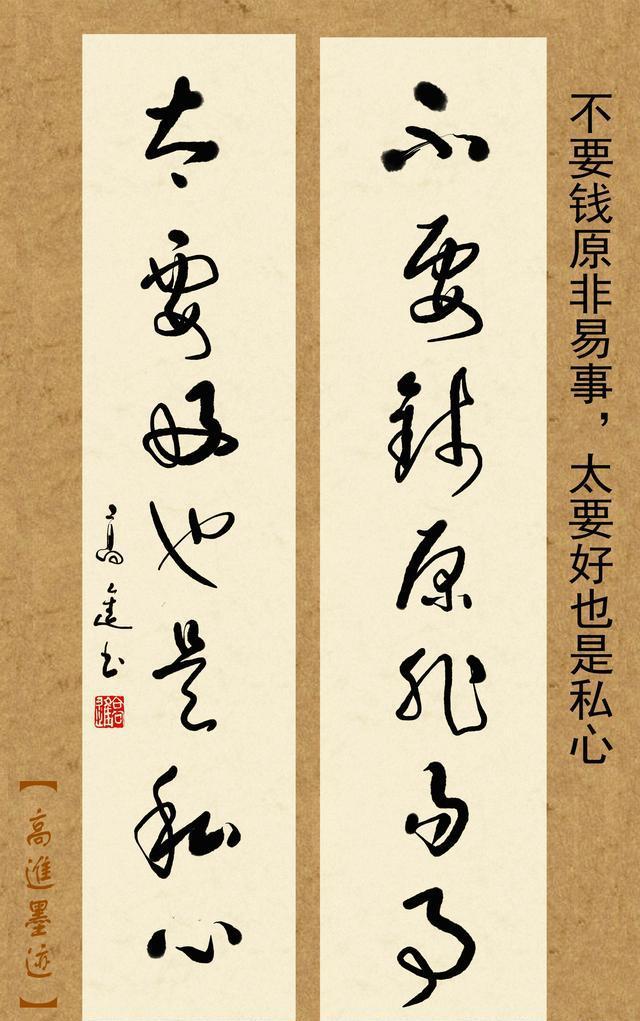 不要钱原非易事，太要好也是私心
不要錢原非易事
太要好也是私心
高進书
【高進墨迹】